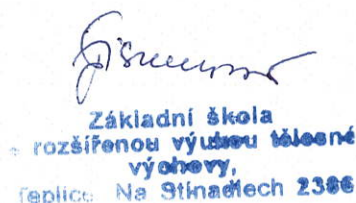 Základní škola
s rozšířenou výukou tělesné
výchovy,
Teplice Na Stínadlech 2386